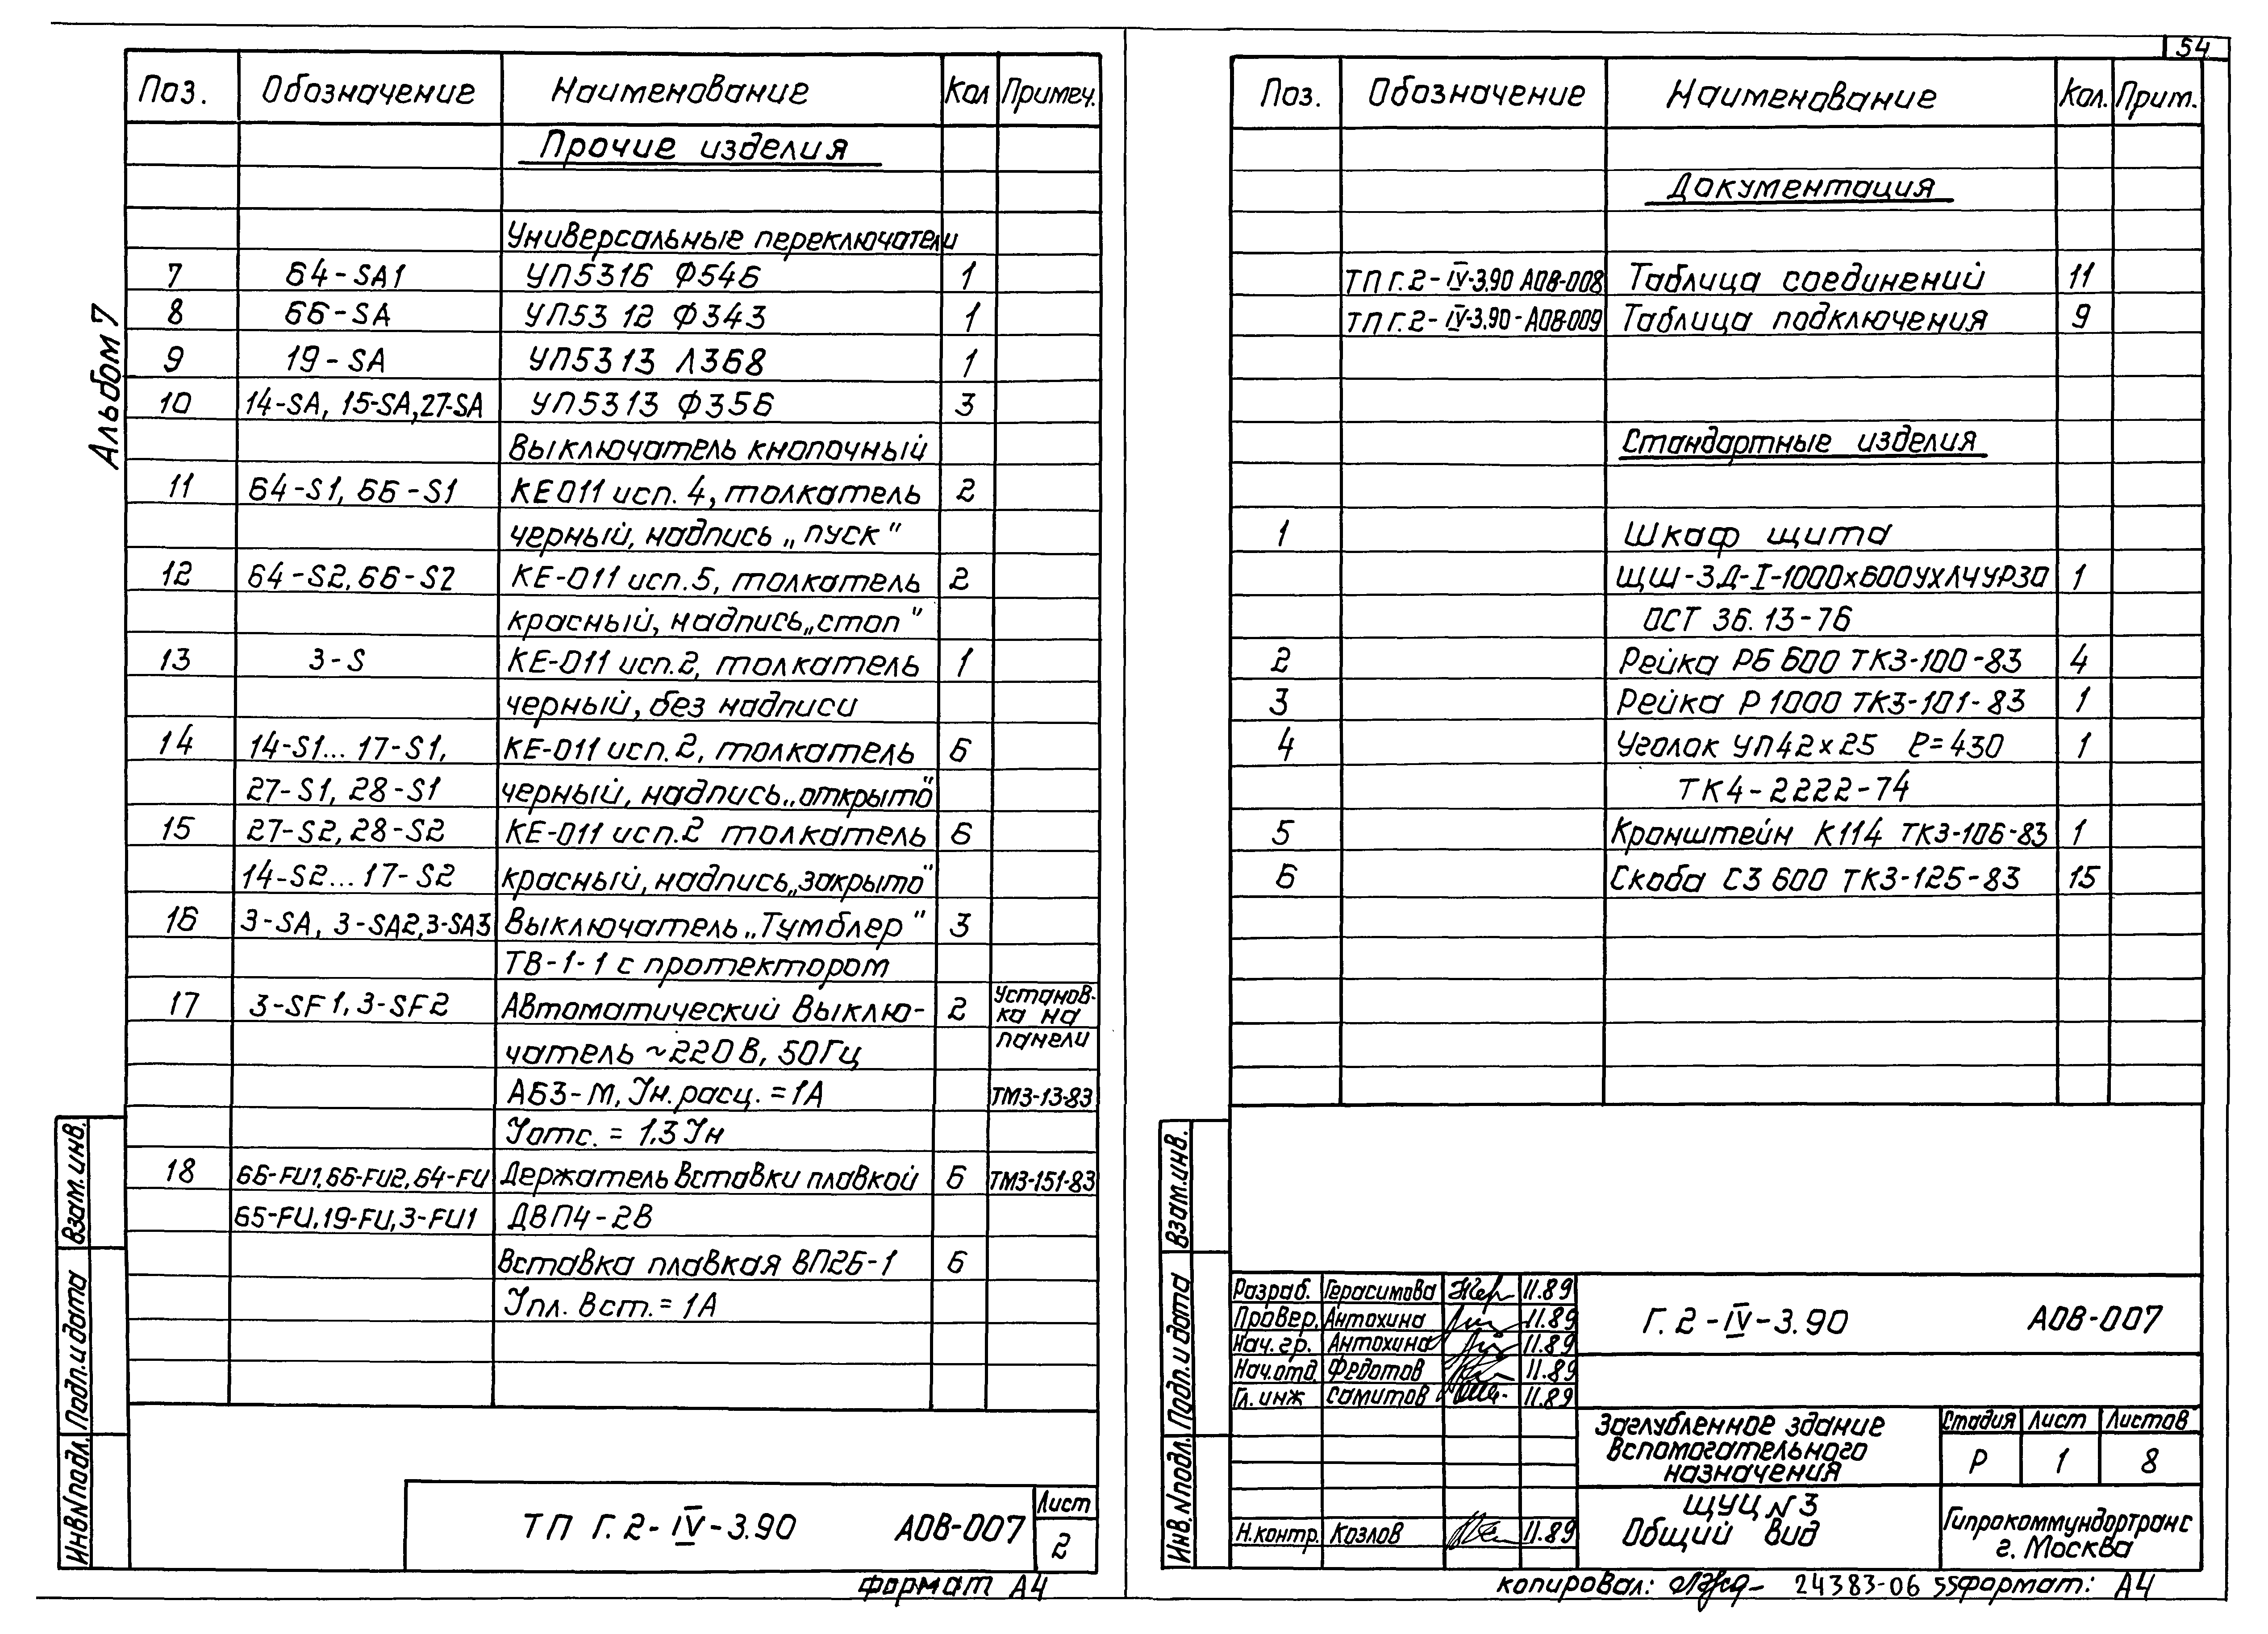 54
Альбом 7
Поз. Обозначение Наименование Кол Примеч.
Прочие изделия
Универсальные переключатели
7 64-SA1 УП5316 Ф546 1
8 66-SA УП5312 Ф343 1
9 19-SA УП5313 Л368 1
10 14-SA, 15-SA, 27-SA УП5313 Ф356 3
Выключатель кнопочный
11 64-S1, 66-S1 КЕ011 исп. 4, толкатель 2
черный, надпись „пуск"
12 64-S2, 66-S2 КЕ-011 исп. 5, толкатель 2
красный, надпись „стоп"
13 3-S КЕ-011 исп. 2, толкатель 1
черный, без надписи
14 14-S1... 17-S1, КЕ-011 исп. 2, толкатель 6
27-S1, 28-S1 черный, надпись „открыто"
15 27-S2, 28-S2 КЕ-011 исп. 2 толкатель 6
14-S2... 17-S2 красный, надпись „закрыто"
16 3-SA, 3-SA2, 3-SA3 Выключатель „Тумблер" 3
ТВ-1-1 с протектором
17 3-SF1, 3-SF2 Автоматический Выклю- 2 Установ-
ка на
чатель ~220В, 50Гц панели
АБЗ-М, Iн. расц. = 1А ТМ3-13-83
Iотс. = 1.3 Iн
18 66-FU1, 66-FU2, 64-FU Держатель вставки плавкой 6 ТМ3-151-83
65-FU, 19-FU, 3-FU1 ДВП4-2В
Вставка плавкая ВП2Б-1 6
Iпл. Вст. = 1А
Взам. инв.
Подп. и дата
Инв. N подл.
ТП Г. 2-IV-3.90 АОВ-007 Лист
2
формат А4
Поз. Обозначение Наименование Кол. Прим.
Документация
ТП Г.2-IV-3.90 АОВ-008 Таблица соединений 11
ТП Г.2-IV-3.90-АОВ-009 Таблица подключения 9
Стандартные изделия
1 Шкаф щита
ЩШ-ЗД-I-1000х600УХЛ4УР30 1
ОСТ 36.13-76
2 Рейка РБ 600 ТК3-100-83 4
3 Рейка Р 1000 ТК3-101-83 1
4 Уголок УП42х25 ℓ=430 1
ТК4-2222-74
5 Кронштейн К114 ТК3-106-83 1
6 Скоба С3 600 ТК3-125-83 15
Взам. инв.
Подп. и дата
Инв. N подл.
Разраб. Герасимова 11.89
Провер. Антохина 11.89
Нач. гр. Антохина 11.89
Нач. отд. Федотов 11.89
Гл. инж Самитов 11.89
Н. контр. Козлов 11.89
Г. 2-IV-3.90 АОВ-007
Заглубленное здание
вспомогательного
назначения
Стадия Лист Листов
Р 1 8
ЩУЦ N 3
Общий вид
Гипрокоммундортранс
г. Москва
копировал: 24383-06 55 формат: А4